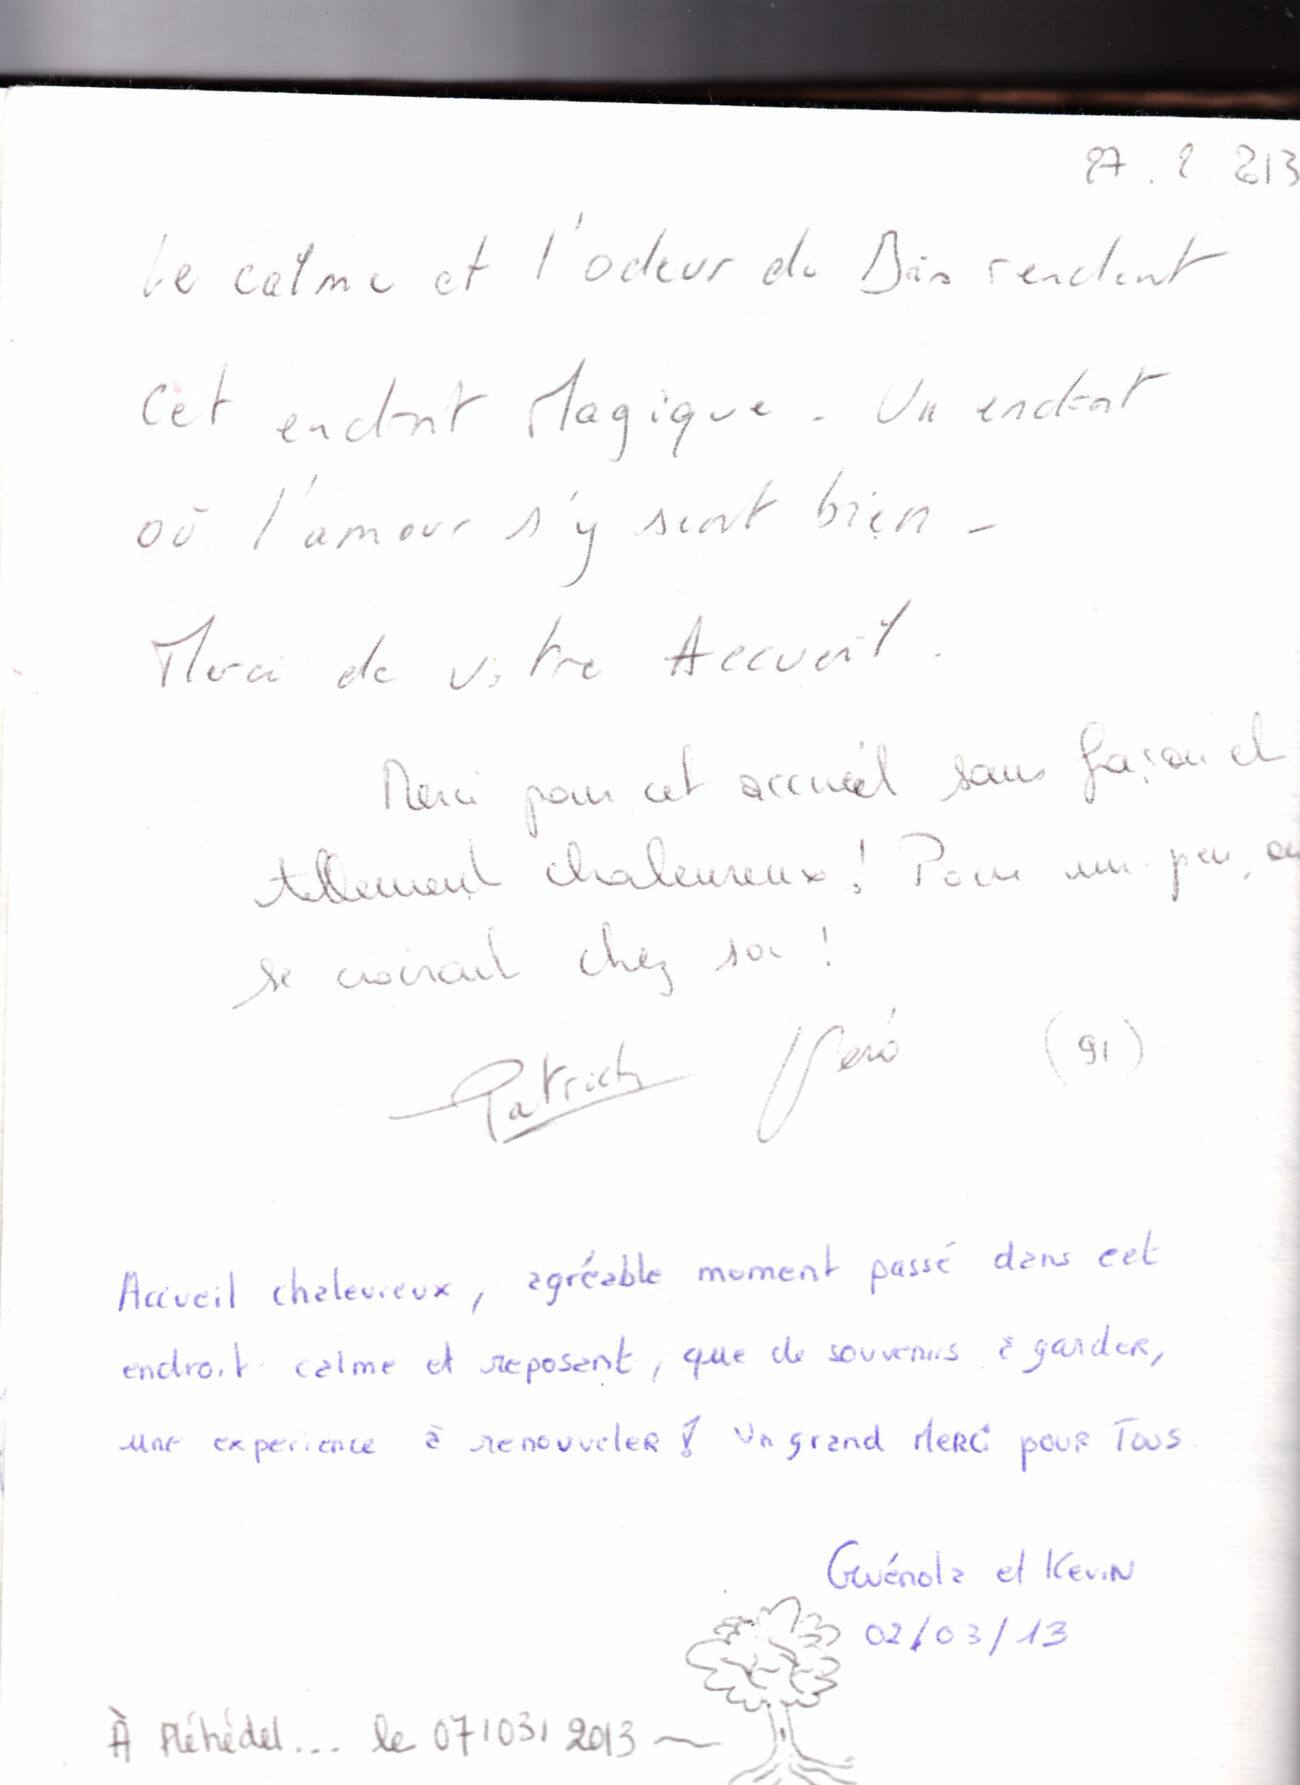 27.2 213
Le calme et l'odeur du Bois rendent
Cet endroit Magique. Un endroit
où l'amour s'y sent bien -
Merci de votre Accueil.
Merci pour cet accueil sans façon et
tellement chaleureux ! Pour un peu, on
se croirait chez soi !
Patrick Véro (91)
Accueil chaleureux, agréable moment passé dans cet
endroit calme et reposant, que de souvenirs à garder,
une experience à renouveler ! Un grand Merci pour Tous
Gwénola et Kevin
02/03/13
À Pléhédel... le 07/03/2013